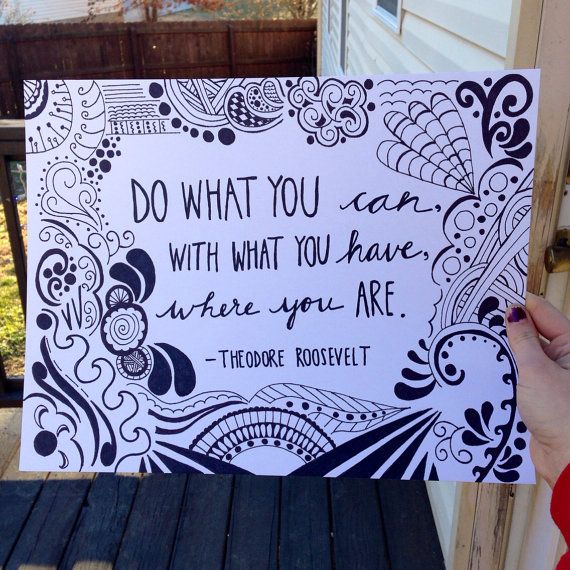 DO WHAT YOU can,
WITH WHAT YOU have,
where you ARE.
-THEODORE ROOSEVELT